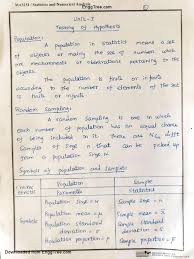 MA3251 - Statistics and Numerical Methods
EnggTree.com
Unit - I
Testing of Hypothesis
Population:
A population in statistics means a set
of objects or mainly the set of numbers which
are measurements or observations pertaining to
the objects.
The population is finite or infinite
according to the number of elements of the set
is finite or infinite.
Random Sampling:
A random sampling is one in which
each number of population has an equal chance
of being included in it. There are NCn different
Samples of size n that can be picked up
from a population of size N.
Symbols of population and samples:
Population
Sample
Parameter
Statistics
Symbols
Population size = N
Sample size = n
Population mean = μ
Sample mean = x̄
Population standard
Sample standard
deviation = σ
deviation = s
Population proportion = P
Sample proportion = p
Downloaded from EnggTree.com